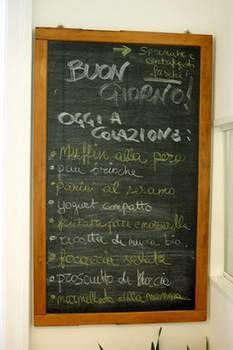 → Spremute e
centrifughe
freschi!
BUON
GIORNO!
OGGI A
COLAZIONE:
• Muffin alla pera
• pan brioche
• panini al sesamo
• yogurt compatto
• frittata pane e mozzarella
• ricotta di mucca bio
• focaccia salata
• prosciutto di Norcia
• marmellata della mamma